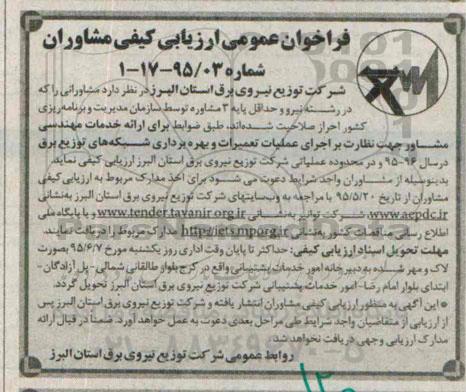 فراخوان عمومی ارزیابی کیفی مشاوران
شماره ۹۵/۰۳-۱۷-۱
شرکت توزیع نیروی برق استان البرز در نظر دارد مشاورانی را که
در رشته نیرو و حداقل پایه ۳ مشاوره توسط سازمان مدیریت و برنامه‌ریزی
کشور احراز صلاحیت شده‌اند، طبق ضوابط برای ارائه خدمات مهندسی
مشاور جهت نظارت بر اجرای عملیات تعمیرات و بهره برداری شبکه‌های توزیع برق
در سال ۹۶-۹۵ و در محدوده عملیاتی شرکت توزیع نیروی برق استان البرز ارزیابی کیفی نماید.
بدینوسیله از مشاوران واجد شرایط دعوت می شود برای اخذ مدارک مربوط به ارزیابی کیفی
مشاوران از تاریخ ۹۵/۵/۲۰ با مراجعه به وب‌سایتهای شرکت توزیع نیروی برق استان البرز به‌نشانی
www.aepdc.ir، شرکت توانیر به‌نشانی www.tender.tavanir.org.ir و یا پایگاه ملی
اطلاع رسانی مناقصات کشور به‌نشانی http://iets.mporg.ir مدارک مربوط را دریافت نمایند.
مهلت تحویل اسناد ارزیابی کیفی: حداکثر تا پایان وقت اداری روز یکشنبه مورخ ۹۵/۶/۷ بصورت
لاک و مهر شده به دبیرخانه امور خدمات پشتیبانی واقع در کرج بلوار طالقانی شمالی- پل آزادگان-
ابتدای بلوار امام رضا- امور خدمات پشتیبانی شرکت توزیع نیروی برق استان البرز تحویل گردد.
این آگهی به منظور ارزیابی کیفی مشاوران انتشار یافته و شرکت توزیع نیروی برق استان البرز پس
از ارزیابی از متقاضیان واجد شرایط طی مراحل بعدی دعوت به عمل خواهد آورد. ضمناً در قبال ارائه
مدارک ارزیابی وجهی دریافت نخواهد شد.
روابط عمومی شرکت توزیع نیروی برق استان البرز